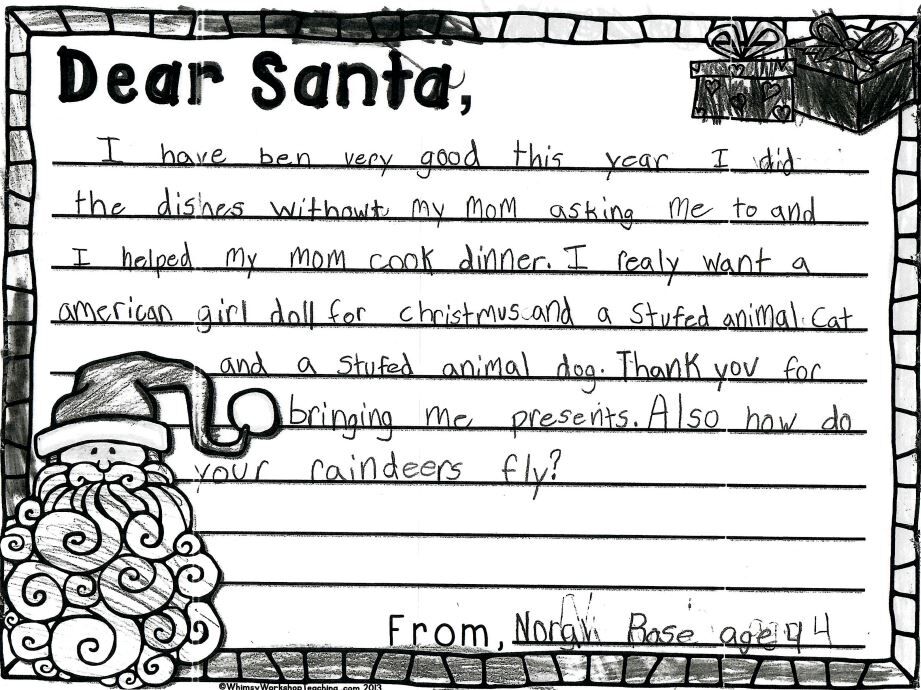 Dear Santa,
I have ben very good this year I did
the dishes without my mom asking me to and
I helped my mom cook dinner. I realy want a
american girl doll for christmus and a stufed animal cat
and a stufed animal dog. Thank you for
bringing me presents. Also how do
your raindeers fly?
From, Rose age
©WhimsyWorkshopTeaching.com 2013